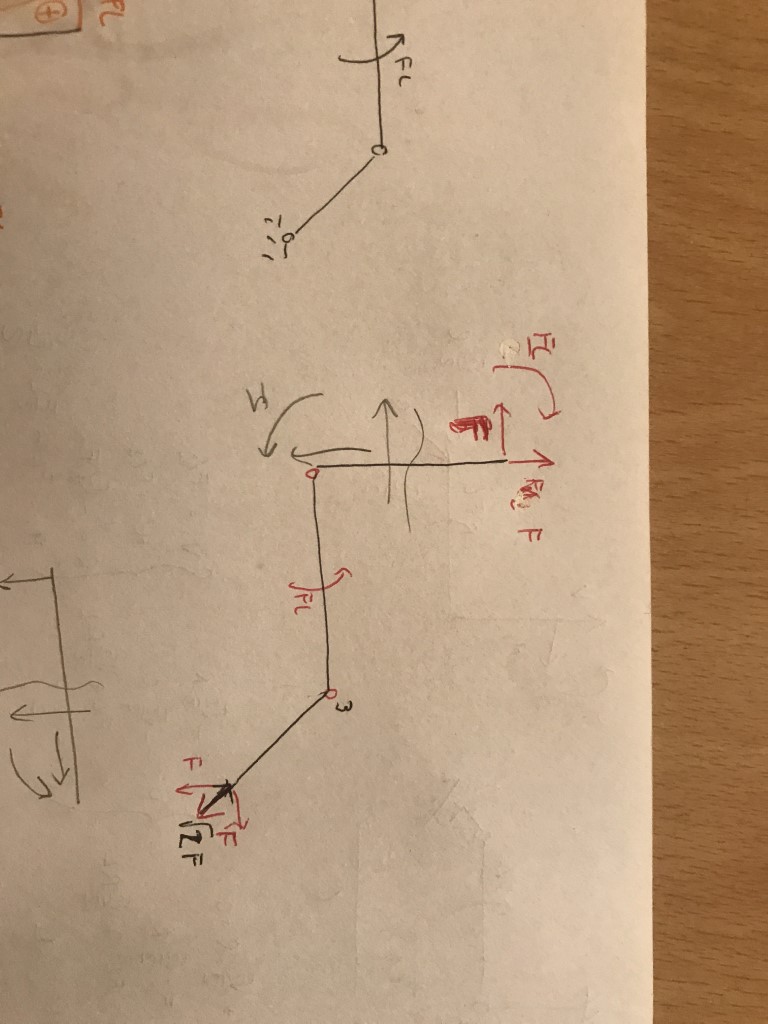 FL
FL
F
F
FL
3
F
F
√2F